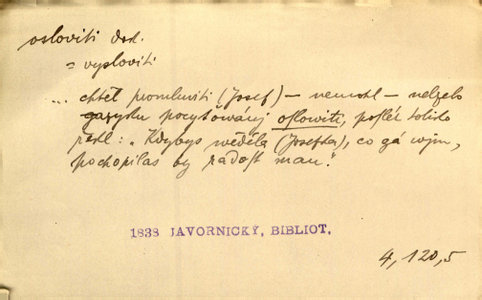 osloviti dok.
= vysloviti
... chtěl promluviti (Josef) – nemohl – nelzelo
gazyku pocytowáný oslowiti, posléz toliko
řekl: „Kdybys wěděla (Josefka), co gá wjm,
pochopilas by radost mau."
1838 JAVORNICKÝ, BIBLIOT.
4, 120,5